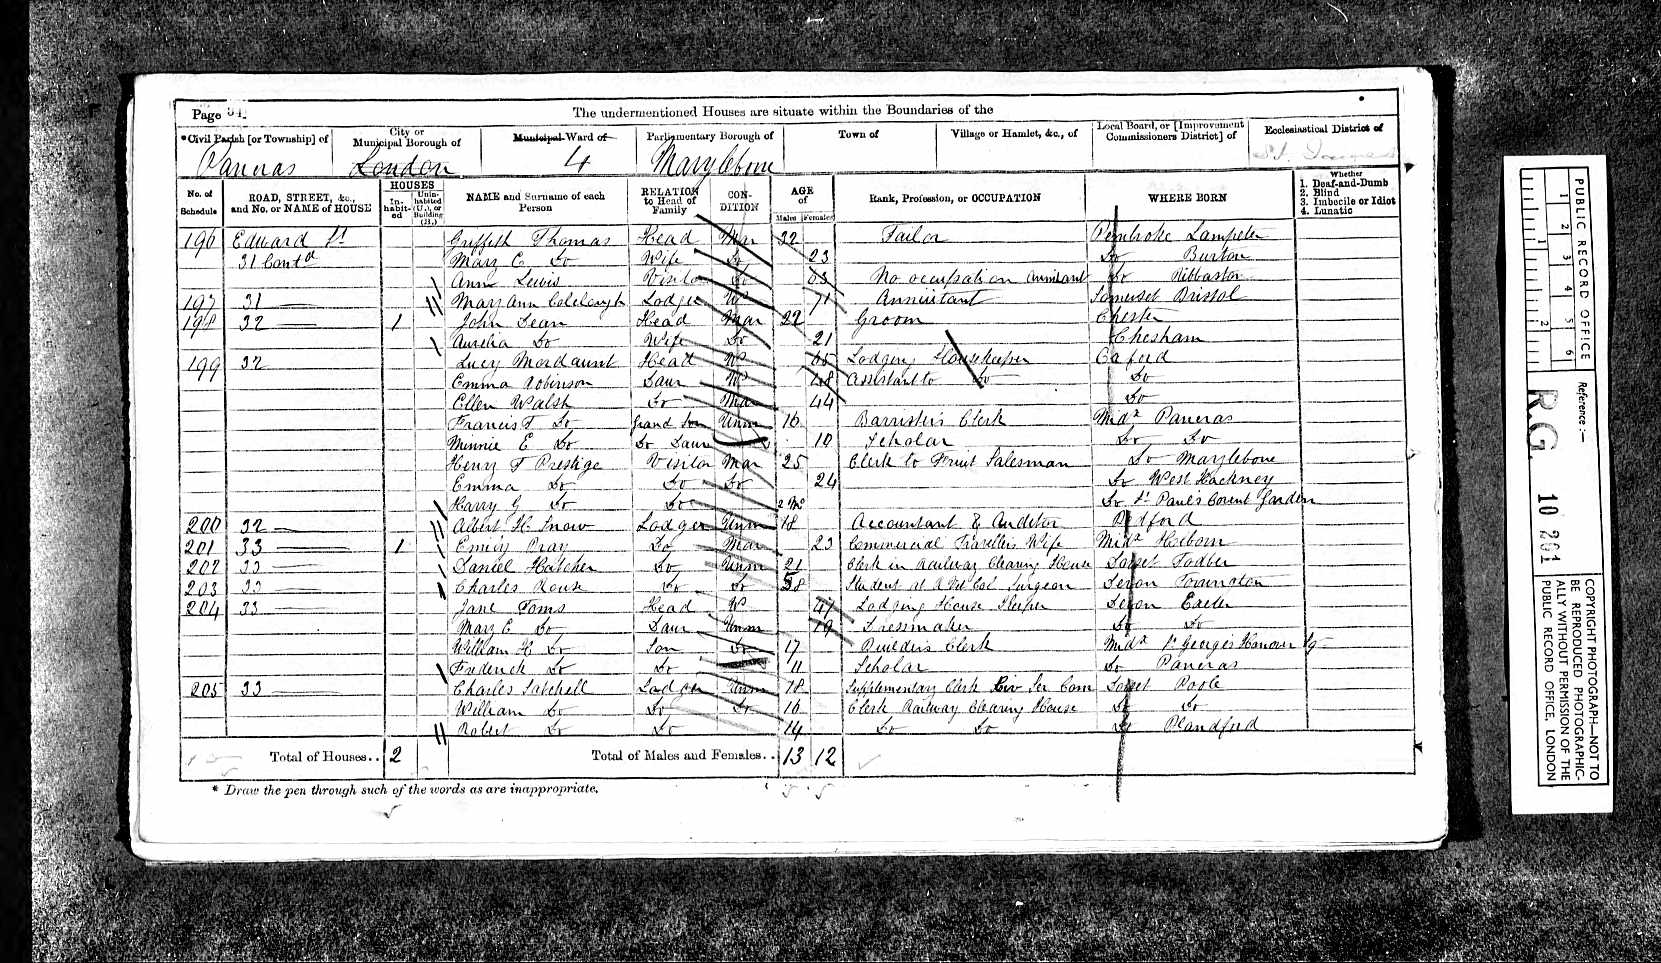 Page 34
The undermentioned Houses are situate within the Boundaries of the
*Civil Parish [or Township] of
City or Municipal Borough of
Municipal Ward of
Parliamentary Borough of
Town of
Village or Hamlet, &c., of
Local Board, or [Improvement Commissioners District] of
Ecclesiastical District of
Pancras London 4 Marylebone St. James
No. of Schedule
ROAD, STREET, &c., and No. or NAME of HOUSE
HOUSES
Inhabited
Uninhabited (U.), or Building (B.)
NAME and Surname of each Person
RELATION to Head of Family
CONDITION
AGE of
Males Females
Rank, Profession, or OCCUPATION
WHERE BORN
Whether
1. Deaf-and-Dumb
2. Blind
3. Imbecile or Idiot
4. Lunatic
196 Edward St Griffith Thomas Head Mar 32 Tailor Pembroke Lampeter
31 Contd Mary E Do Wife Do 23 Do Burton
Ann Lewis Visitor Do No occupation Annuitant Do
197 31 Mary Ann Lodger W 71 Annuitant Somerset Bristol
198 32 1 John Dean Head Mar 22 Groom Chester
Aurelia Do Wife Do 21 Chesham
199 32 Lucy Mordaunt Head W 65 Lodging Housekeeper
Emma Robinson Daur W 48 Assistant to Do Do
Ellen Walsh Do Mar 44 Do
Francis T Do Grand Son Unm 16 Barrister's Clerk Midx Pancras
Minnie E Do Do Daur 10 Scholar Do Do
Henry T Prestige Visitor Mar 25 Clerk to Fruit Salesman Do Marylebone
Emma Do Do Do 24 Do West Hackney
Harry G Do Do 2 Mo Do St Paul's Covent Garden
200 32 Albert H Snow Lodger Unm 18 Accountant & Auditor
201 33 1 Emily Pray Do Mar 23 Commercial Travellers Wife Midx Holborn
202 33 Daniel Hatcher Do Unm 21 Clerk in Railway Clearing House Dorset
203 33 Charles Rouse Do Do 38 Student at Col Surgeon Devon Torrington
204 33 Jane Toms Head W 47 Lodging House Keeper Devon Exeter
Mary E Do Daur Unm 19 Dressmaker Do Do
William H Do Son Do 17 Builders Clerk Midx St George's Hanover Sq
Frederick Do Do 11 Scholar Do Pancras
205 33 Charles Satchell Lodger Unm 18 Supplementary Clerk Civ Ser Com Dorset Poole
William Do Do Do 16 Clerk Railway Clearing House Do Do
Robert Do Do 14 Do Do Do Blandford
Total of Houses.. 2
Total of Males and Females.. 13 12
* Draw the pen through such of the words as are inappropriate.
PUBLIC RECORD OFFICE
1 2 3 4 5 6
1 2
Reference:-
R.G. 10 201
COPYRIGHT PHOTOGRAPH—NOT TO BE REPRODUCED PHOTOGRAPHICALLY WITHOUT PERMISSION OF THE PUBLIC RECORD OFFICE, LONDON